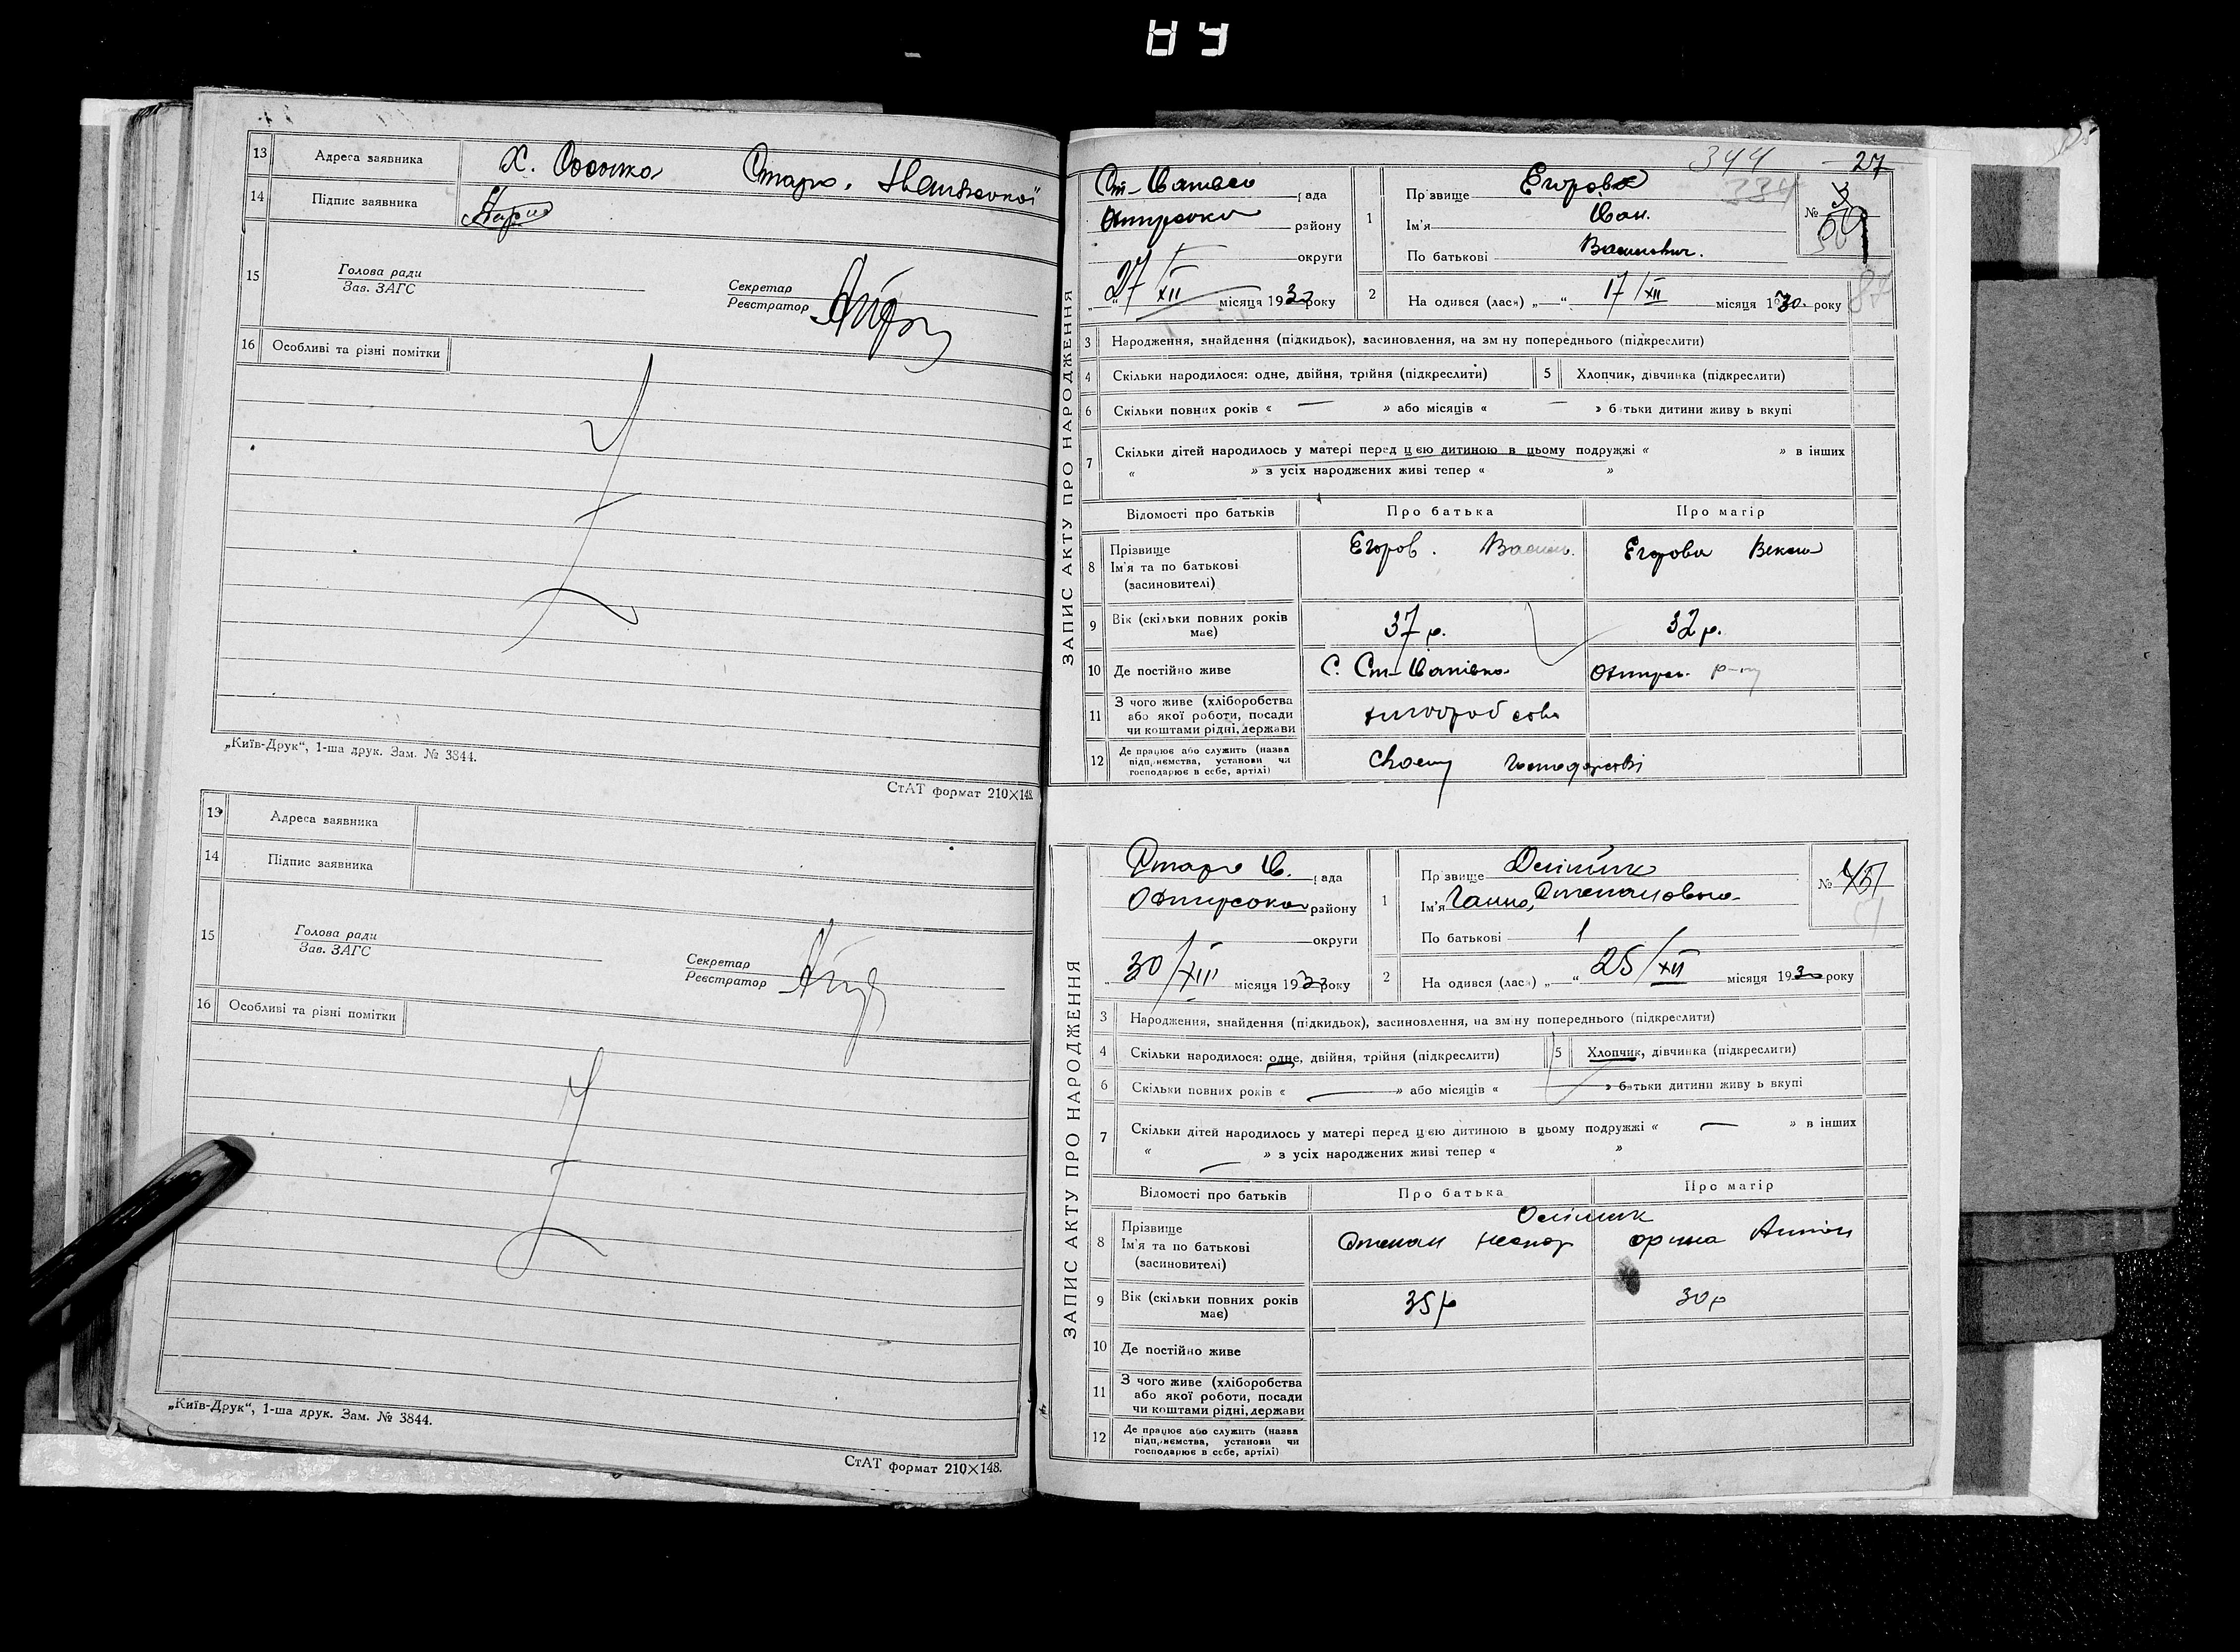 13 Адреса заявника Х.
14 Підпис заявника
15 Голова ради
Зав. ЗАГС
Секретар
Реєстратор
16 Особливі та різні помітки
„Київ-Друк“, 1-ша друк. Зам. № 3844.
СтАТ формат 210×148.
13 Адреса заявника
14 Підпис заявника
15 Голова ради
Зав. ЗАГС
Секретар
Реєстратор
16 Особливі та різні помітки
„Київ-Друк“, 1-ша друк. Зам. № 3844.
СтАТ формат 210×148.
344 27
334
ЗАПИС АКТУ ПРО НАРОДЖЕННЯ
рада
району
округи
27/XII місяця 1930 року
1 Прізвище Єгоров
Ім'я Іван.
По батькові Васильович.
№
2 На одився (лась) „—“ 17/XII місяця 1930 року
3 Народження, знайдення (підкидьок), засиновлення, на зм ну попереднього (підкреслити)
4 Скільки народилося: одне, двійня, трійня (підкреслити)
5 Хлопчик, дівчинка (підкреслити)
6 Скільки повних років « — » або місяців « — » батьки дитини живу ь вкупі
7 Скільки дітей народилось у матері перед цією дитиною в цьому подружжі « » в інших
« » з усіх народжених живі тепер « »
Відомості про батьків Про батька Про матір
8 Прізвище
Ім'я та по батькові
(засиновителі)
Єгоров. Василь. Єгорова
9 Вік (скільки повних років
має)
37 р. 32 р.
10 Де постійно живе С. Ст-Іванівка р-ну
11 З чого живе (хліборобства
або якої роботи, посади
чи коштами рідні, держави
12 Де працює або служить (назва
підприємства, установи чи
господарює в себе, артілі)
своєму господарстві
ЗАПИС АКТУ ПРО НАРОДЖЕННЯ
Старо І. рада
району
округи
30/XII місяця 1930 року
1 Прізвище
Ім'я Ганна Степановна
По батькові
№
2 На одився (лась) „—“ 25/XII місяця 1930 року
3 Народження, знайдення (підкидьок), засиновлення, на зміну попереднього (підкреслити)
4 Скільки народилося: одне, двійня, трійня (підкреслити)
5 Хлопчик, дівчинка (підкреслити)
6 Скільки повних років « — » або місяців « — » батьки дитини живу ь вкупі
7 Скільки дітей народилось у матері перед цією дитиною в цьому подружжі « — » в інших
« — » з усіх народжених живі тепер « »
Відомості про батьків Про батька Про матір
8 Прізвище
Ім'я та по батькові
(засиновителі)
Степан Орина Антон
9 Вік (скільки повних років
має)
35 р 30 р
10 Де постійно живе
11 З чого живе (хліборобства
або якої роботи, посади
чи коштами рідні, держави
12 Де працює або служить (назва
підприємства, установи чи
господарює в себе, артілі)